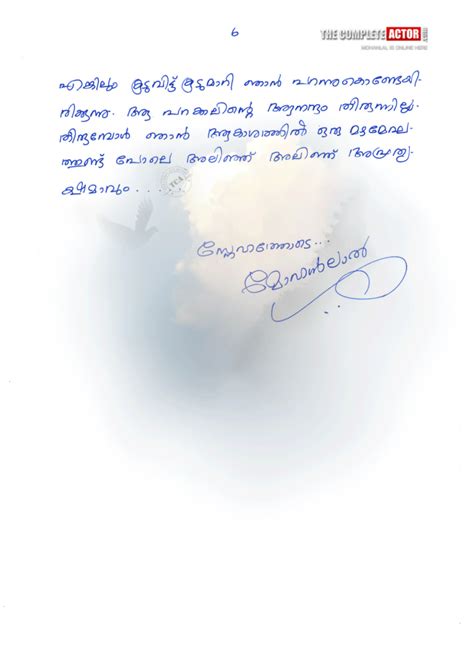 6
THE COMPLETE ACTOR .COM
MOHANLAL IS ONLINE HERE
എങ്കിലും കൂടുവിട്ട് കൂടുമാറി ഞാൻ പറന്നുകൊണ്ടേയി-
രിക്കുന്നു. ആ പറക്കലിന്റെ ആനന്ദം തീരുന്നില്ല.
തീരുമ്പോൾ ഞാൻ ആകാശത്തിൽ ഒരു മേഘ-
ത്തുണ്ട് പോലെ അലിഞ്ഞ് അലിഞ്ഞ് അപ്രത്യ-
ക്ഷമാവും . . . . .
TCA
സ്നേഹത്തോടെ...
മോഹൻലാൽ